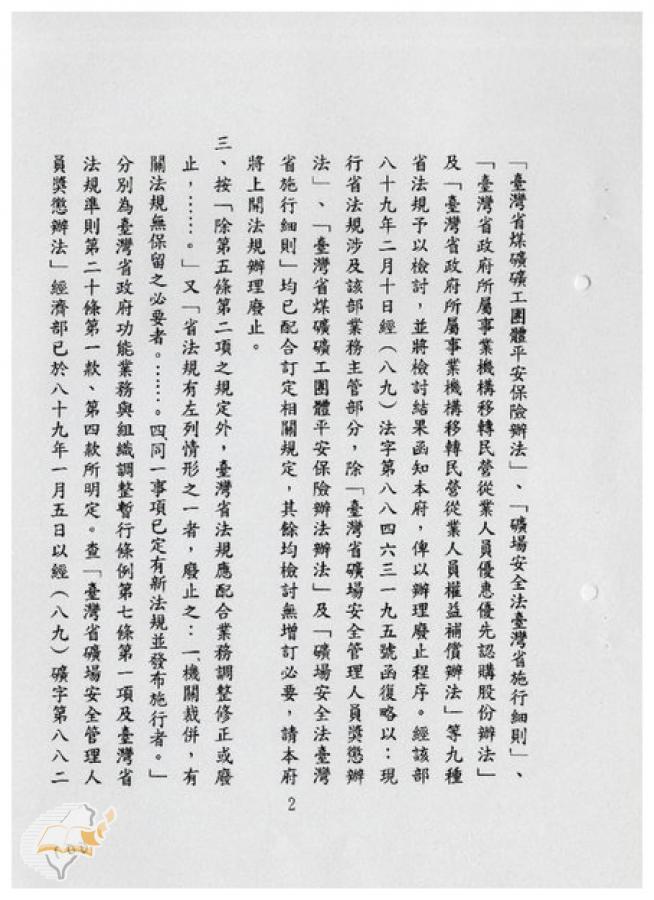 「臺灣省煤礦礦工團體平安保險辦法」、「礦場安全法臺灣省施行細則」、
「臺灣省政府所屬事業機構移轉民營從業人員優惠優先認購股份辦法」
及「臺灣省政府所屬事業機構移轉民營從業人員權益補償辦法」等九種
省法規予以檢討，並將檢討結果函知本府，俾以辦理廢止程序。經該部
八十九年二月十日經（八九）法字第八八四六三一九五號函復略以：現
行省法規涉及該部業務主管部分，除「臺灣省礦場安全管理人員獎懲辦
法」、「臺灣省煤礦礦工團體平安保險辦法辦法」及「礦場安全法臺灣
省施行細則」均已配合訂定相關規定，其餘均檢討無增訂必要，請本府
將上開法規辦理廢止。
三、按「除第五條第二項之規定外，臺灣省法規應配合業務調整修正或廢
止，……。」又「省法規有左列情形之一者，廢止之：一、機關裁併，有
關法規無保留之必要者。……。四、同一事項已定有新法規並發布施行者。」
分別為臺灣省政府功能業務與組織調整暫行條例第七條第一項及臺灣省
法規準則第二十條第一款、第四款所明定。查「臺灣省礦場安全管理人
員獎懲辦法」經濟部已於八十九年一月五日以經（八九）礦字第八八二
2